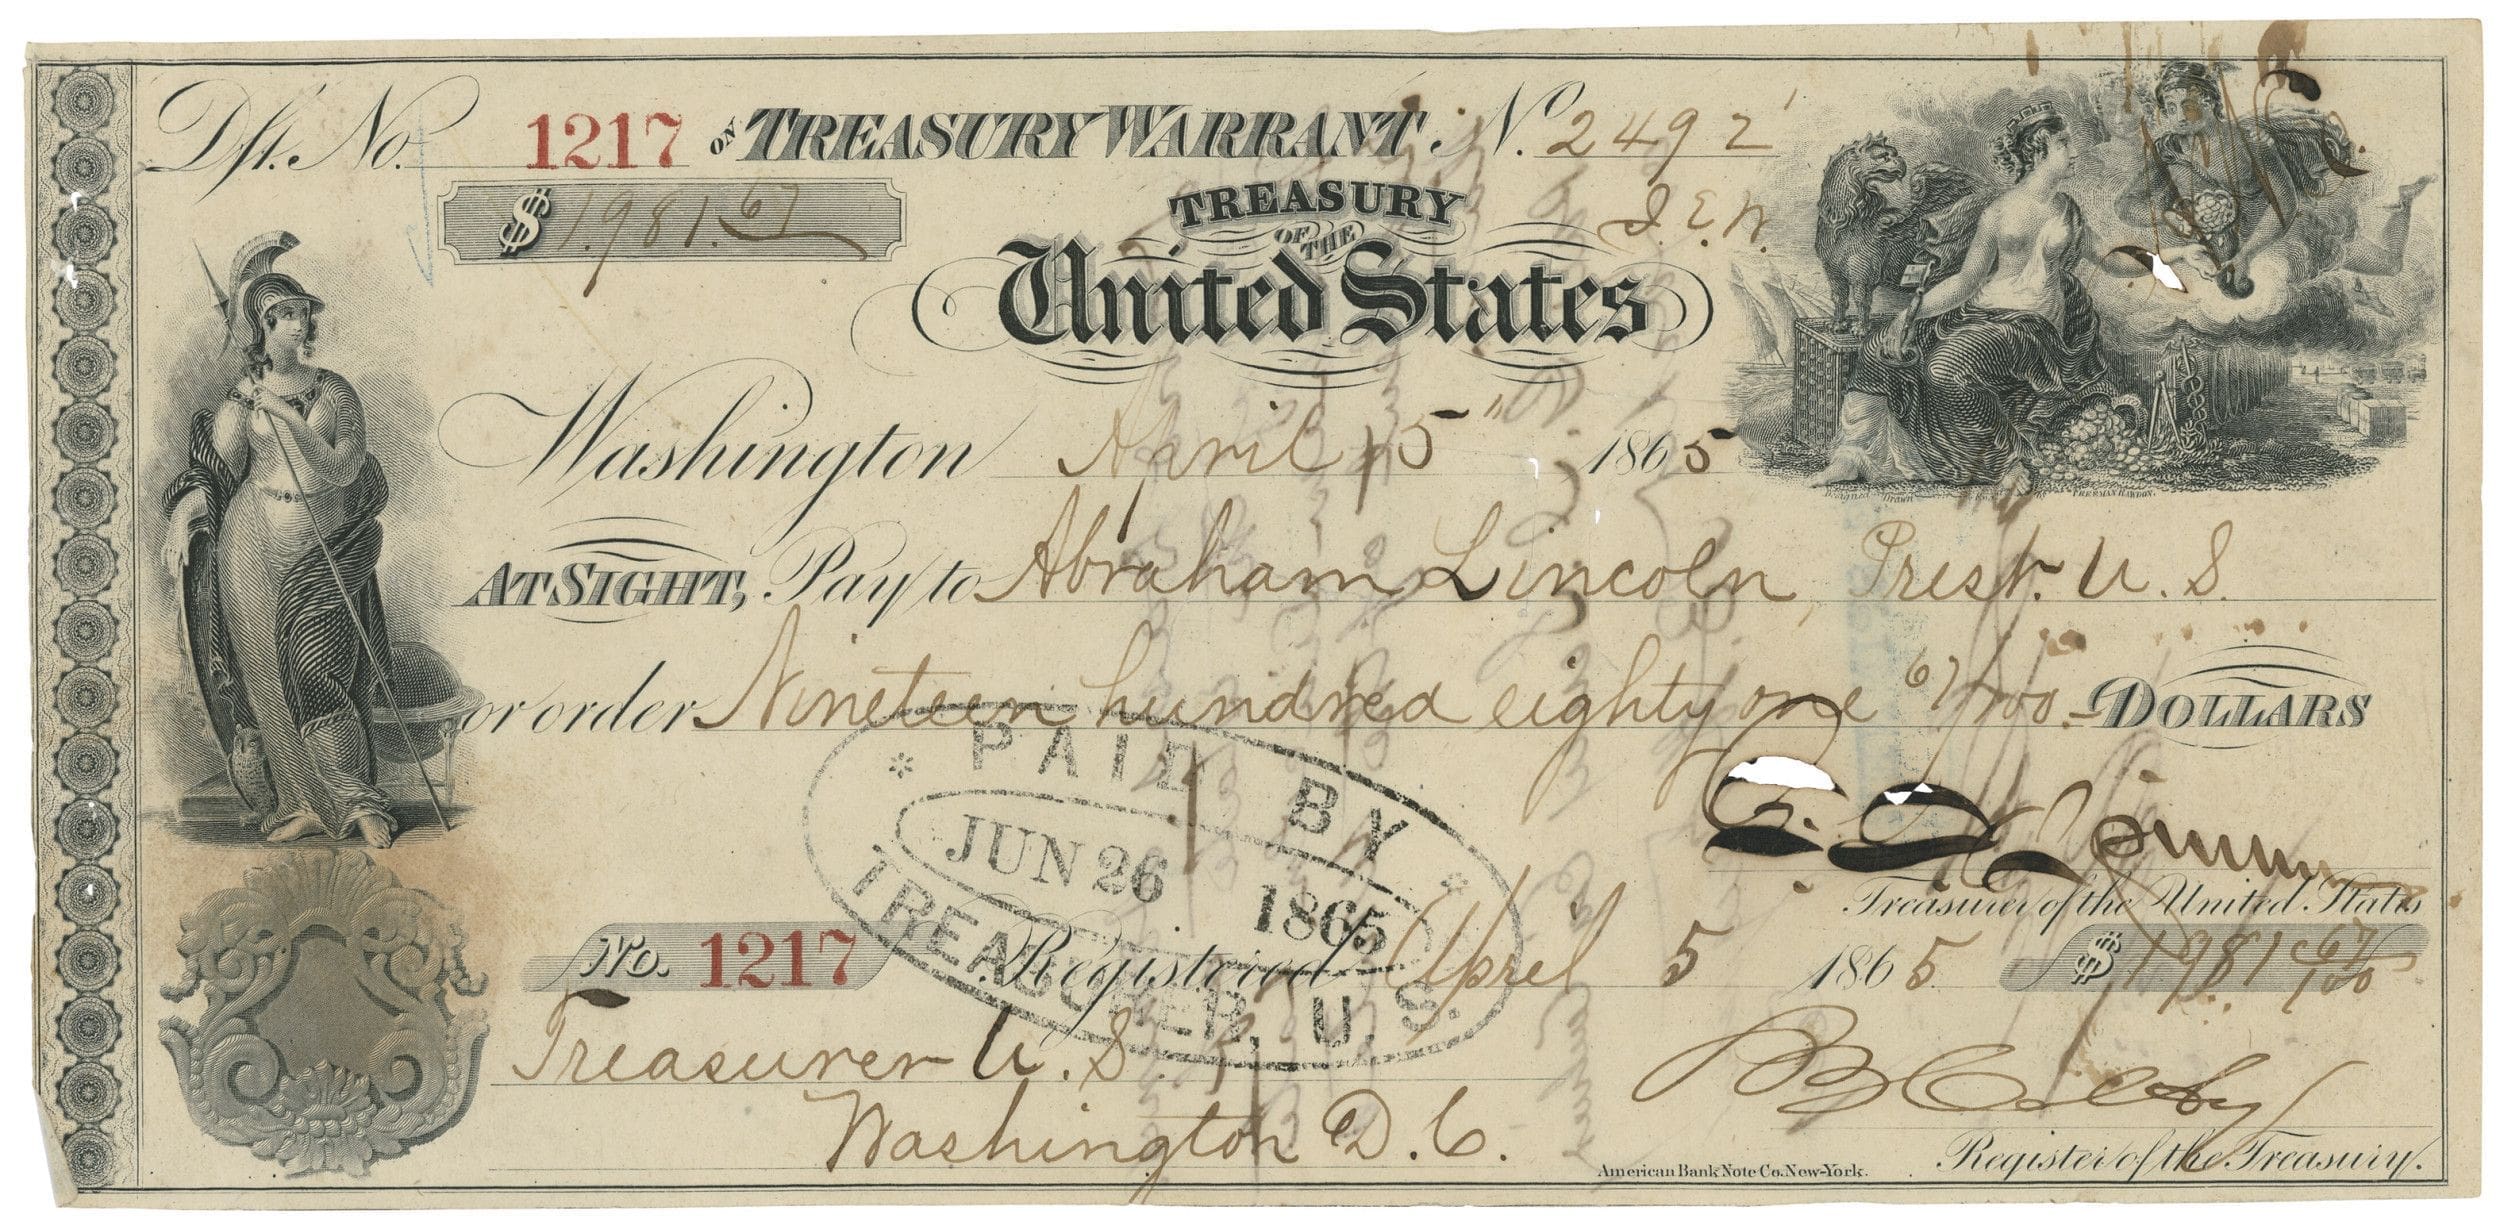 Dft. No. 1217 ON TREASURY WARRANT. No. 2492
$ 1.981.67
J.E.W.
TREASURY
OF THE
United States
Washington April 5" 1865
AT SIGHT, Pay to Abraham Lincoln, Prest. U.S.
or order Nineteen hundred eighty one 67/100 DOLLARS
* PAID BY *
JUN 26 1865
TREASURER, U. S.
F. E. Spinner
Treasurer of the United States
No. 1217 Registered April 5 1865 $ 1981 67/100
Treasurer U.S.
Washington D.C.
Colby
Register of the Treasury.
American Bank Note Co. New-York.